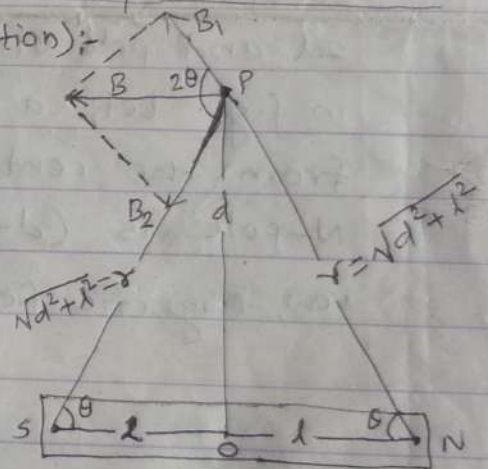 tion):-
B₁
B 2θ P
B₂ d
√d²+l² = r
r = √d²+l²
S θ l O l θ N